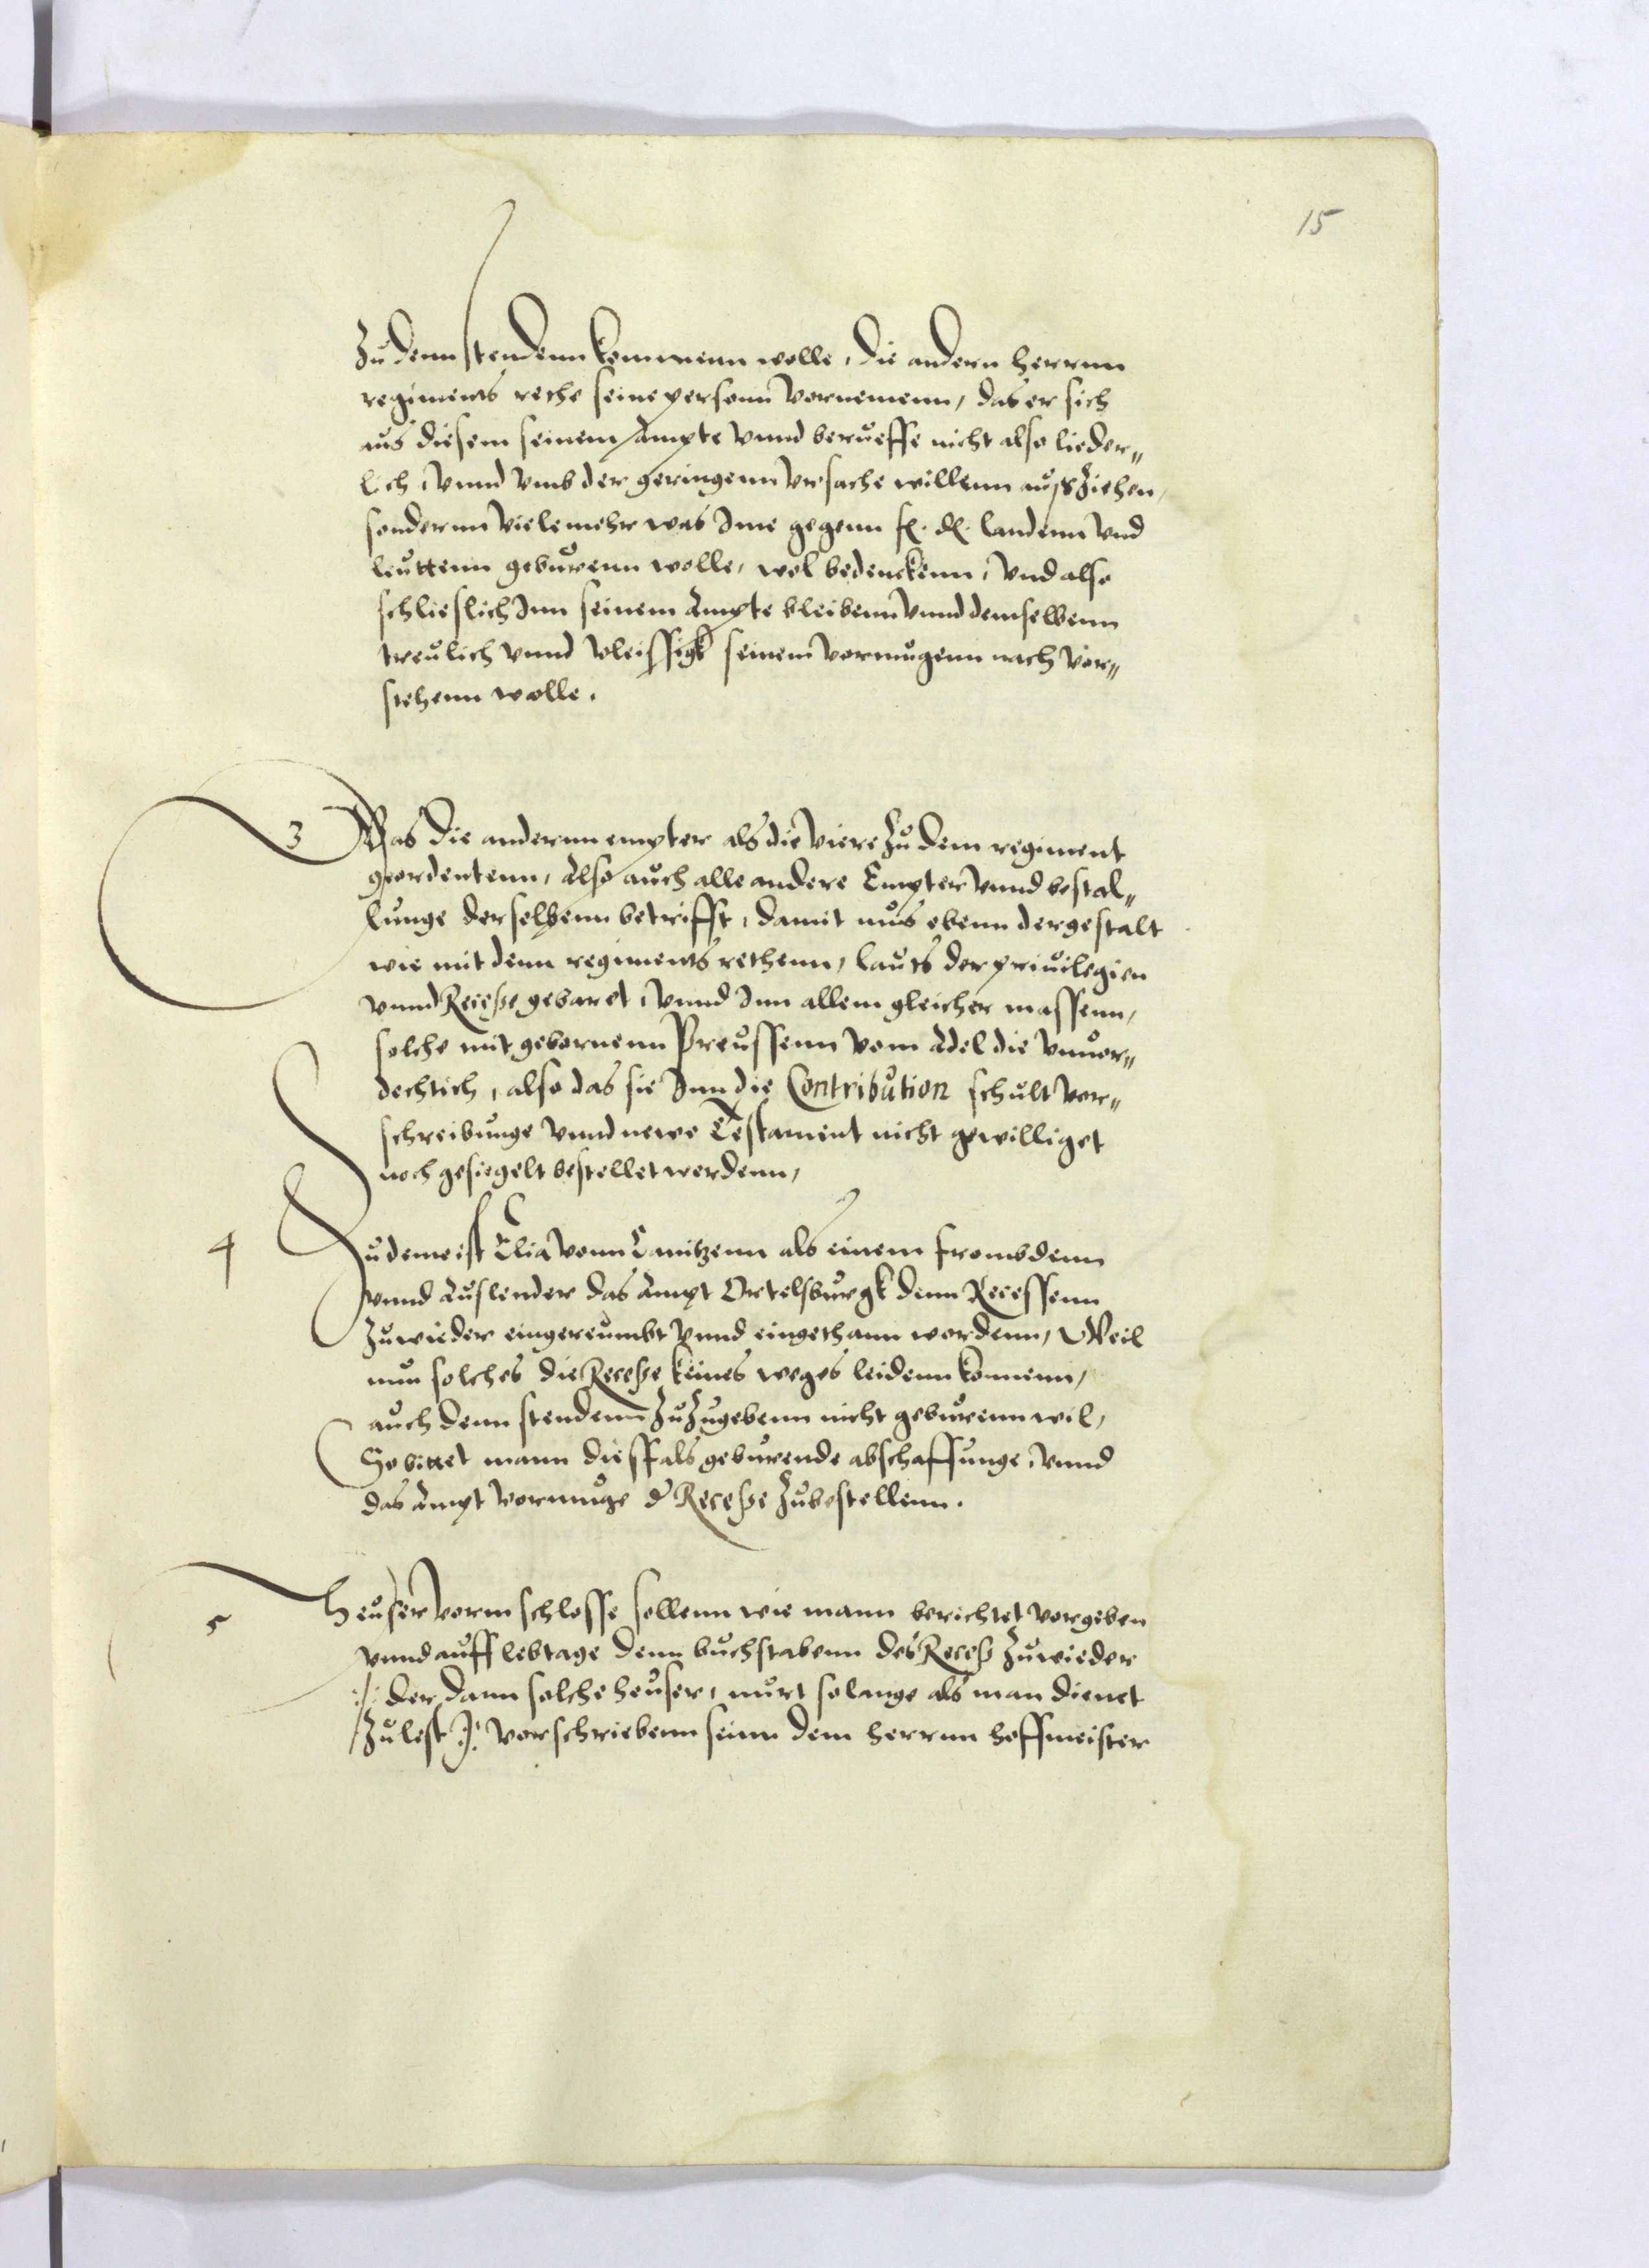 15
Zu denn stendenn kommenn wolle, die andern herrnn
regiments rethe seine personn vornemenn, das er sich
aus diesem seinem Ampte vnnd berueffe nicht also lieder„
lich, vnnd vmb der geringenn vrsache willenn auszziehen,
sondernn vielemehr was Jme gegenn f. d. landenn vnd
leuttenn geburenn wolle, wol bedenckenn, vnd also
schlieslich Jnn seinem Ampte bleibenn vnnd demselbenn
treulich vnnd vleissigk seinem vormugenn nach vor„
stehenn wolle.
3 Was die andernn empter als die viere Zu dem regiment
geordentenn, Also auch alle andere Empter vnnd bestal„
lunge derselbenn betrifft, damit mus ebenn dergestalt
wie mit denn regiments rethenn, lauts der priuilegien
vnnd Recesse gebaret, vnnd Jnn allem gleicher massenn,
solche mit gebornenn Preussenn vom Adel die vnuor„
dechtich, also das sie Jnn die Contribution schult vor„
schreibunge vnnd newe Testament nicht gewilliget
noch gesiegelt bestellet werdenn,
4 Zudeme ist Elia vonn Canitzenn als einem frombdenn
vnnd Auslender das Ampt Ortelsburgk denn Recessenn
Zuwieder eingereumbt vnnd eingethann wordenn, Weil
nun solches die Recesse keines weges leidenn konnenn,
auch denn stendenn Zuzugebenn nicht geburenn wil,
So bittet mann diessfals geburende abschaffunge, vnnd
das Ampt vormuge d' Recesse Zubestellenn.
5 Heuser vorm schlosse sollenn wie mann berichtet vorgeben
vnnd auff lebtage denn buchstabenn des Recess Zuwieder
:/: der dann solche heuser, nurt solange als man dienet
Zulest :/: vorschriebenn seinn dem herrnn hoffmeister